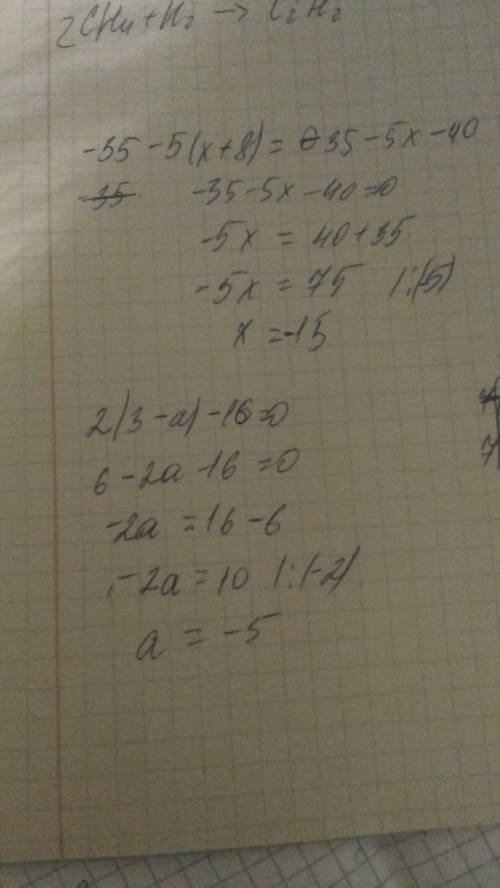 2CH4 + H2 → C2H2
-35 - 5(x+8) = -35 - 5x - 40
-35 -35-5x-40=0
-5x = 40+35
-5x = 75 |:(-5)
x = -15
2(3-a)-16=0
6-2a-16=0
-2a = 16-6
-2a = 10 |:(-2)
a = -5
7